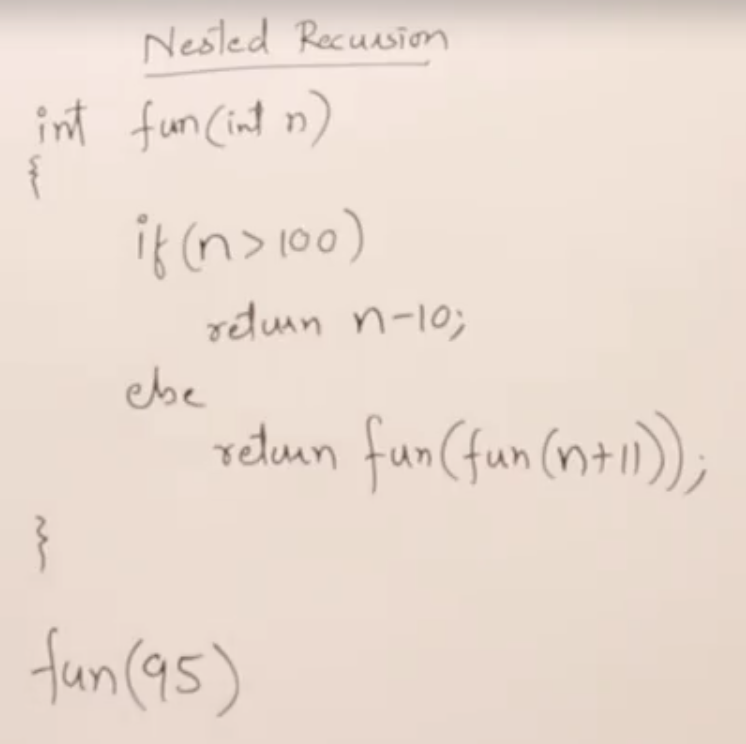 Nested Recursion
int fun(int n)
{
if(n>100)
return n-10;
else
return fun(fun(n+11));
}
fun(95)